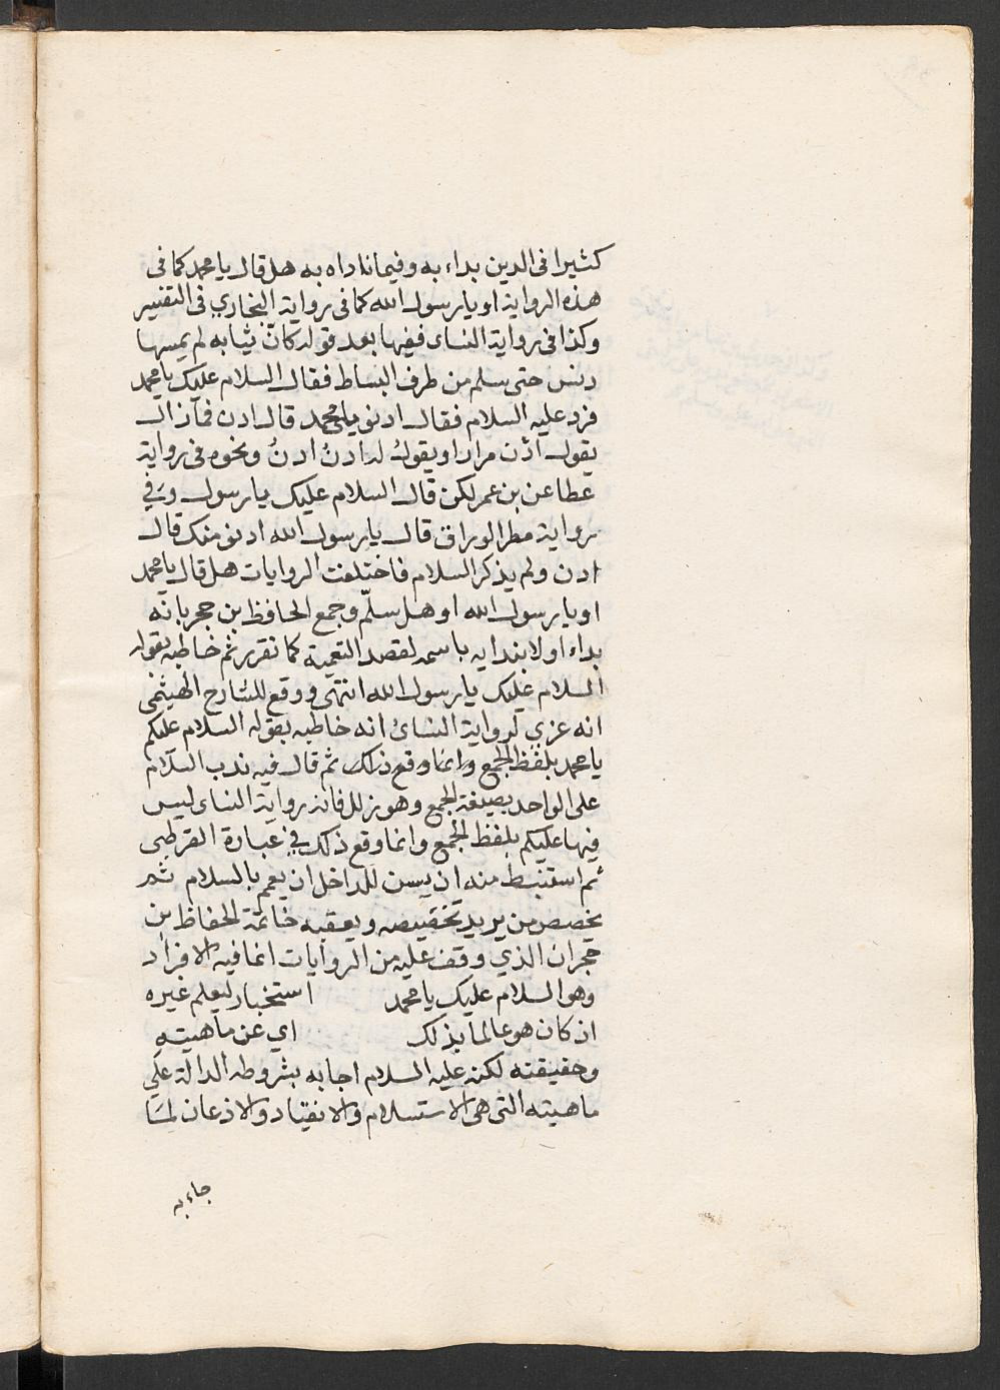 كثيرا في الدين بداء به وفيما ناداه به هل قال يا محمد كما في
هذه الرواية او يا رسول الله كما في رواية البخاري في التفسير
وكذا في رواية النساى ففيها بعد قوله كان ثيابه لم يمسها
دنس حتى سلم من طرف البساط فقال السلام عليك يا محمد
فرد عليه السلام فقال ادنو يا محمد قال ادن فما زال
يقول ادن مرارا ويقول له ادن ادن ونحوه في رواية
عطا عن بن عمر لكن قال السلام عليك يا رسول وفي
رواية مطر الوراق قال يا رسول الله ادنو منك قال
ادن ولم يذكر السلام فاختلفت الروايات هل قال يا محمد
او يا رسول الله او هل سلّم وجمع الحافظ بن حجر بانه
بداء اولا بندايه باسمه لقصد التعمية كما تقرر ثم خاطبه بقوله
السلام عليك يا رسول الله انتهى ووقع للشارح الهيثمى
انه عزي لرواية النسائ انه خاطبه بقوله السلام عليكم
يا محمد بلفظ الجمع وانما وقع ذلك ثم قال فيه ندب السلام
على الواحد بصيغة الجمع وهو زلل فان رواية النساى ليس
فيها عليكم بلفظ الجمع وانما وقع ذلك في عبارة القرطبى
ثم استنبط منه ان يسن للداخل ان يعم بالسلام ثم
يخصص من يريد تخصيصه ويعقبه خاتمة الحفاظ بن
حجر ان الذي وقف عليه من الروايات انما فيه الافراد
وهو السلام عليك يا محمد استخبار ليعلم غيره
اذ كان هو عالما بذلك اي عن ماهيته
وحقيقته لكنه عليه السلام اجابه بشروطه الدالة على
ماهيته التى هى الاستسلام والانقياد والاذعان لما
جاء به